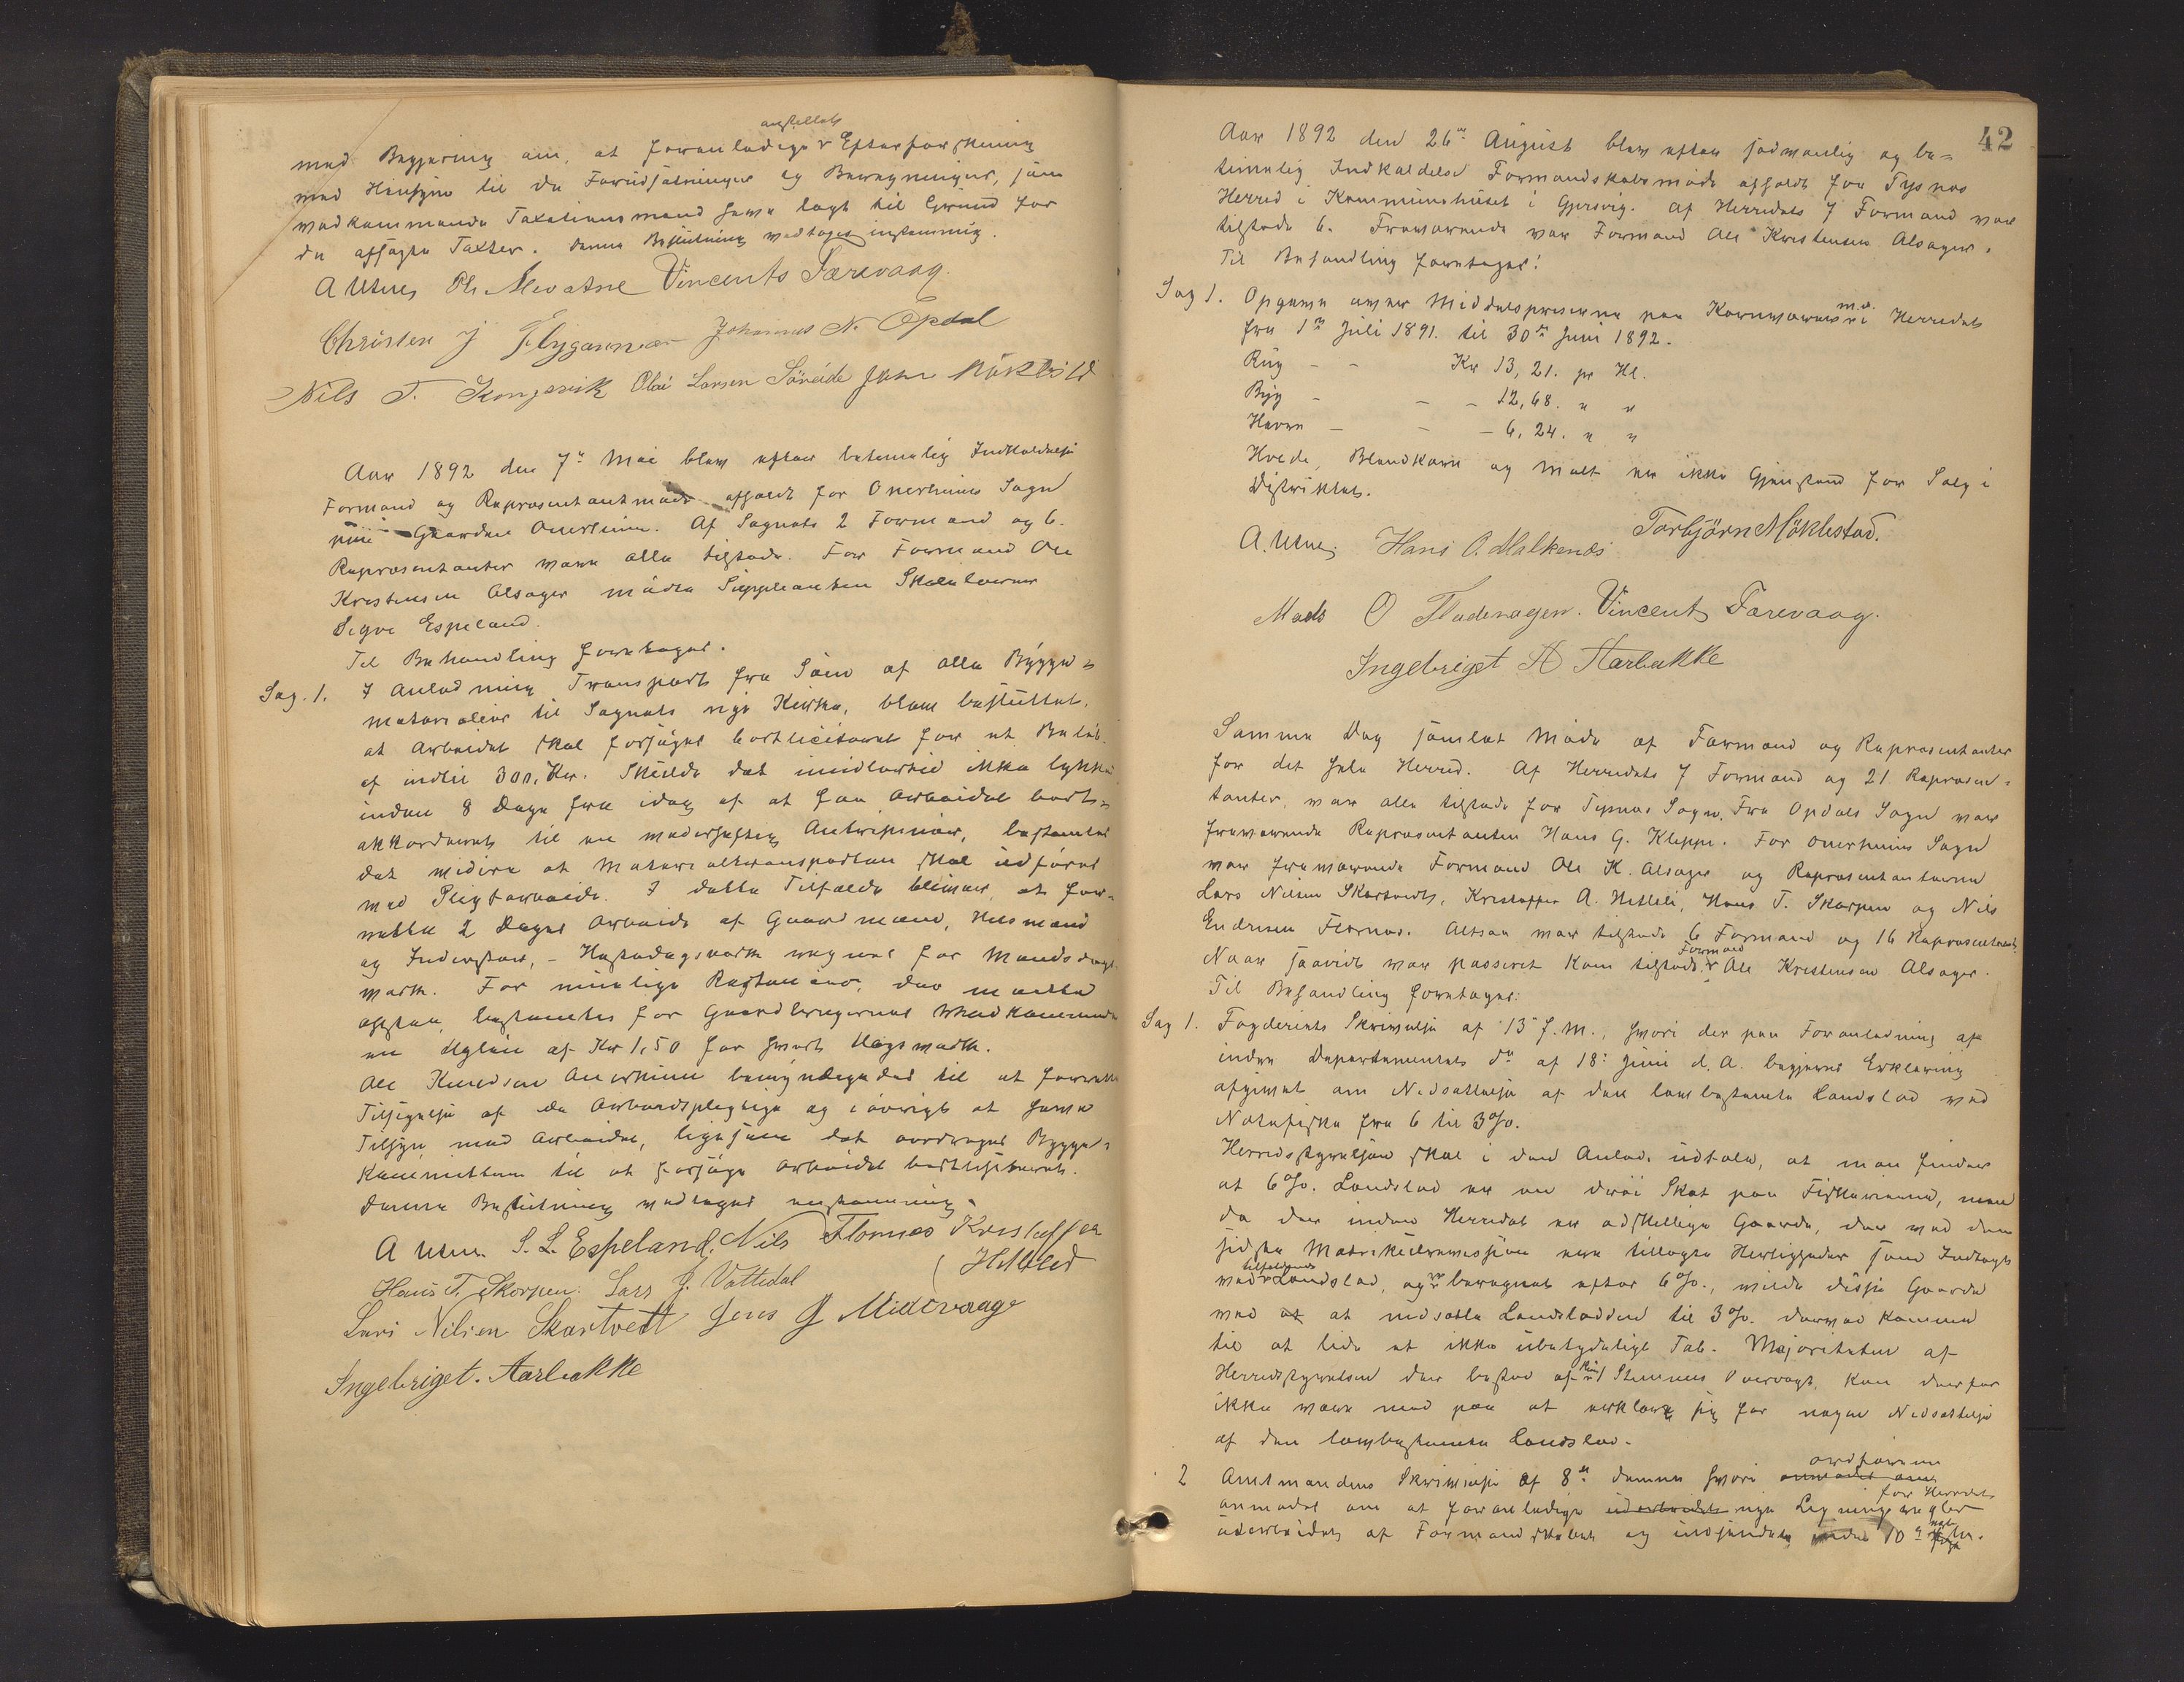 anstillet
med Begjæring om, at foranledige Efterforskning
med Hensyn til de Forudsætninger og Beregninger, som
vedkommende Taxationsmænd have lagt til Grund for
de afsagte Taxter. Denne Beslutning vedtoges enstemmig.
A Utne, Vincents Færevaag.
Christen J Flygansvær Johannes N. Opdal
Nils T. Kongsvik Olai Larsen Söreide John Mökkild
Aar 1892 den 7de Mai blev efter betimelig Indkaldelse
Formand og Repræsentantmøde afholdt for Onerheims Sogn
paa Gaarden Onerheim. Af Sognets 2 Formænd og 6
Repræsentanter vare alle tilstede. For Formand Ole
Kristensen Alsager mødte Suppleanten Skolelærer
Sigve Espeland.
Til Behandling foretoges.
Sag. 1. I Anledning Transport fra Søen af alle Bygge-
materialier til Sognets nye Kirke, blev besluttet,
at Arbeidet skal forsøges bortliciteret for et Beløb
af indtil 300. Kr. Skulde det imidlertid ikke lykkes
inden 8 Dage fra idag af at faa Arbeidet bort-
akkorderet til en vederheftig Entreprenør, bestemtes
det videre at Materialtransporten skal udføres
med Pligtarbeide. I dette Tilfælde bliver at for-
rette 2 Dages Arbeide af Gaardmænd, Husmænd
og Inderster, – Hestedagsverk regnes for Mandsdags-
værk. For mulige Restancer, der maatte
opstaa, bestemtes for Gaardbrugernes Vedkommende
en Udgløn af Kr 1,50 for hvert Dagsværk.
Ole Knudsen Onerheim bemyndigedes til at foretage
Tilsigelse af de Arbeidspligtige og iøvrigt at have
Tilsyn med Arbeidet, ligesom det overdroges Bygge-
kommitteen til at forsøge Arbeidet bortliciteret.
Denne Beslutning vedtoges enstemmig.
A Utne. S. L. Espeland. Nils Flornæs Kristoffer
Hetleli
Hans T. Skorpen. Lars J. Vattedal
Lars Nilsen Skartvedt Jens J Midtvaage
Ingebrigt. Aarbakke
42
Aar 1892 den 26de August blev efter sedvanlig og be-
timelig Indkaldelse Formandskabsmøde afholdt for Tysnes
Herred i Kommunehuset i Gjersvig. Af Herredets 7 Formænd var
tilstede 6. Fraværende var Formand Ole Kristensen Alsager.
Til Behandling foretoges:
Sag 1. Opgave over Middelspriserne paa Kornvarer m.v. i Herredet
fra 1ste Juli 1891. til 30te Juni 1892.
Rug – – Kr 13,21. pr Hl.
Byg – – – 12,68. " "
Havre – – – 6,24. " "
Hvede, Blandkorn og Malt er ikke Gjenstand for Salg i
Distriktet.
A. Utne, Hans O. Malkenæs Torbjörn Möklestad.
Mads O Fladeragen. Vincent Færevaag.
Ingebrigt A Aarbakke
Samme Dag samlet Møde af Formænd og Repræsentanter
for det hele Herred. Af Herredets 7 Formænd og 21 Repræsen-
tanter, var alle tilstede for Tysnæs Sogn. Fra Opdals Sogn var
fraværende Repræsentanten Hans G. Kleppe. For Onerheims Sogn
var fraværende Formand Ole K. Alsager og Repræsentanterne
Lars Nilsen Skartvedt, Kristoffer A. Hetleli, Hans T. Skorpen og Nils
Endresen Flornæs. Altsaa var tilstede 6 Formænd og 16 Repræsentanter.
Naar saavidt var passeret kom tilstede Formand Ole Kristensen Alsager.
Til Behandling foretoges:
Sag 1. Fogderiets Skrivelse af 13de f. M., hvori der paa Foranledning af
indre Departementets do af 18de Juni d. A. begjæres Erklæring
afgivet om Nedsættelse af den lovbestemte Landslod ved
Notefiske fra 6 til 3%.
Herredsstyrelsen skal i den Anled. udtale, at man finder
at 6%. Landslod er en drøi Skat paa Fiskerierne, men
da der inden Herredet er adskillige Gaarde, der ved den
sidste Matrikulrevision ere tillagte Herligheder som Indtægt
ved tilfaldende Landslod, og er beregnet efter 6%., vilde disse Gaarde
ved at nedsætte Landslodden til 3%. derved komme
til at lide et ikke ubetydeligt Tab. Majoriteten af
Herredsstyrelsen der bestod af kun 1 Stemmes Overvægt, kan derfor
ikke være med paa at erklære sig for nogen Nedsættelse
af den lovbestemte Landslod.
2 Amtmandens Skrivelse af 8de dennes hvori ordføreren
anmodes om at foranledige nye Ligningsregler for Herredet
udarbeidet af Formandskabet og indsendte inden 10de